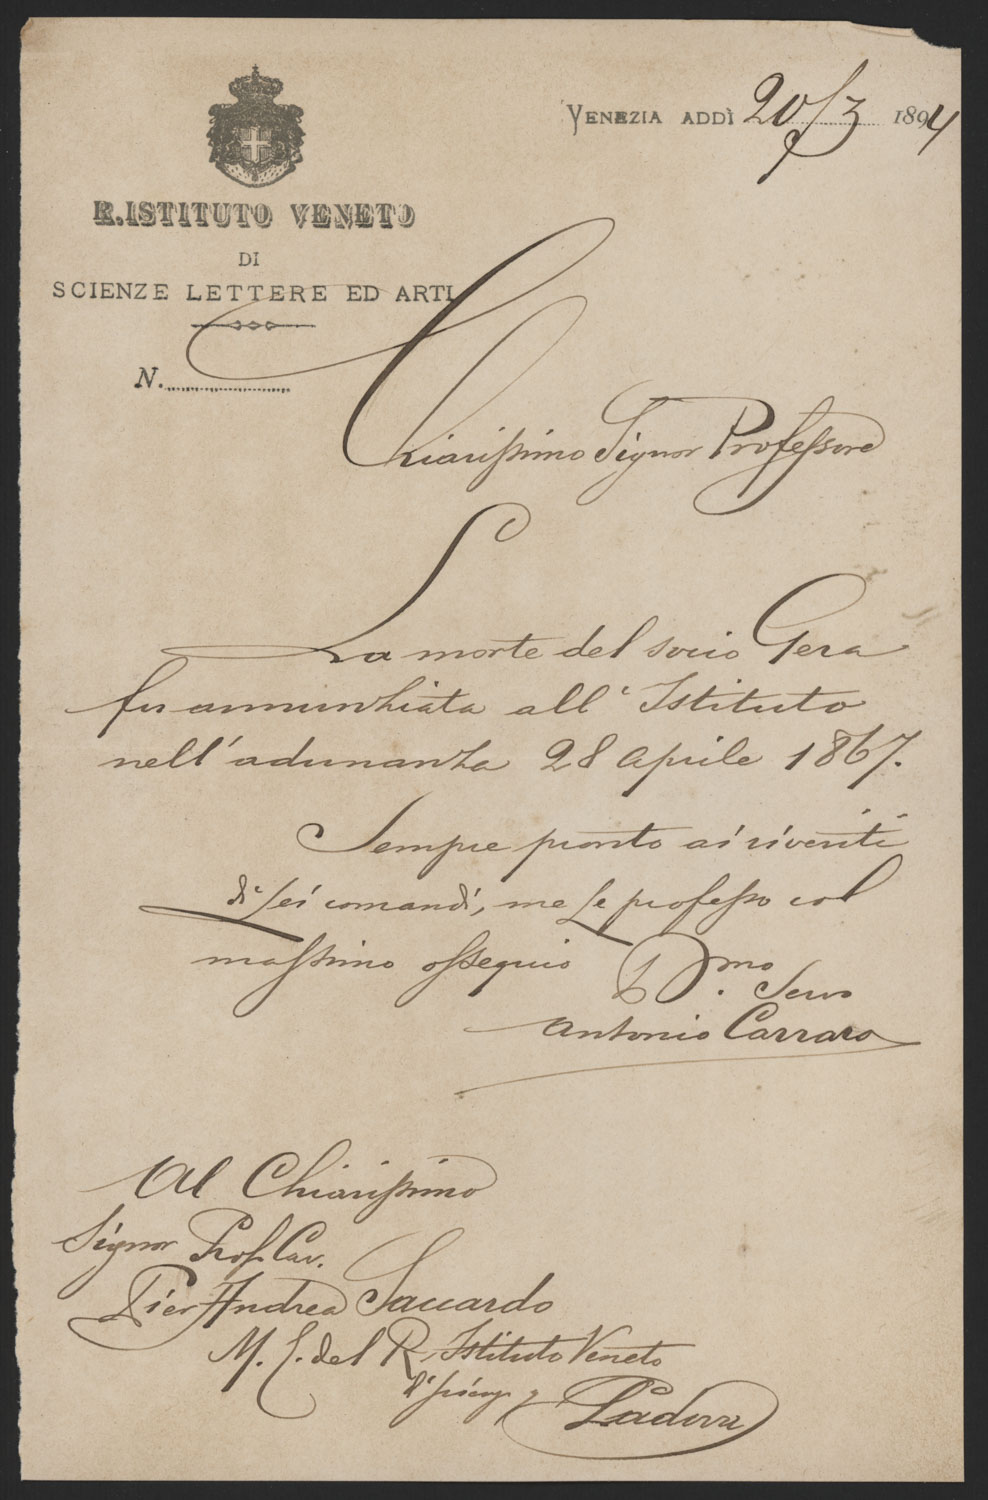 R. ISTITUTO VENETO
DI
SCIENZE LETTERE ED ARTI
N.
VENEZIA ADDÌ 20/3 1894
Chiarissimo Signor Professore
La morte del socio Gera
fu annunziata all'Istituto
nell'adunanza 28 aprile 1867.
Sempre pronto ai riveriti
di Lei comandi, me Le professo col
massimo ossequio
D.mo Servo
Antonio Carraro
Al Chiarissimo
Signor Prof. Cav.
Pier Andrea Saccardo
M. E. del R. Istituto Veneto
di scienze
Padova